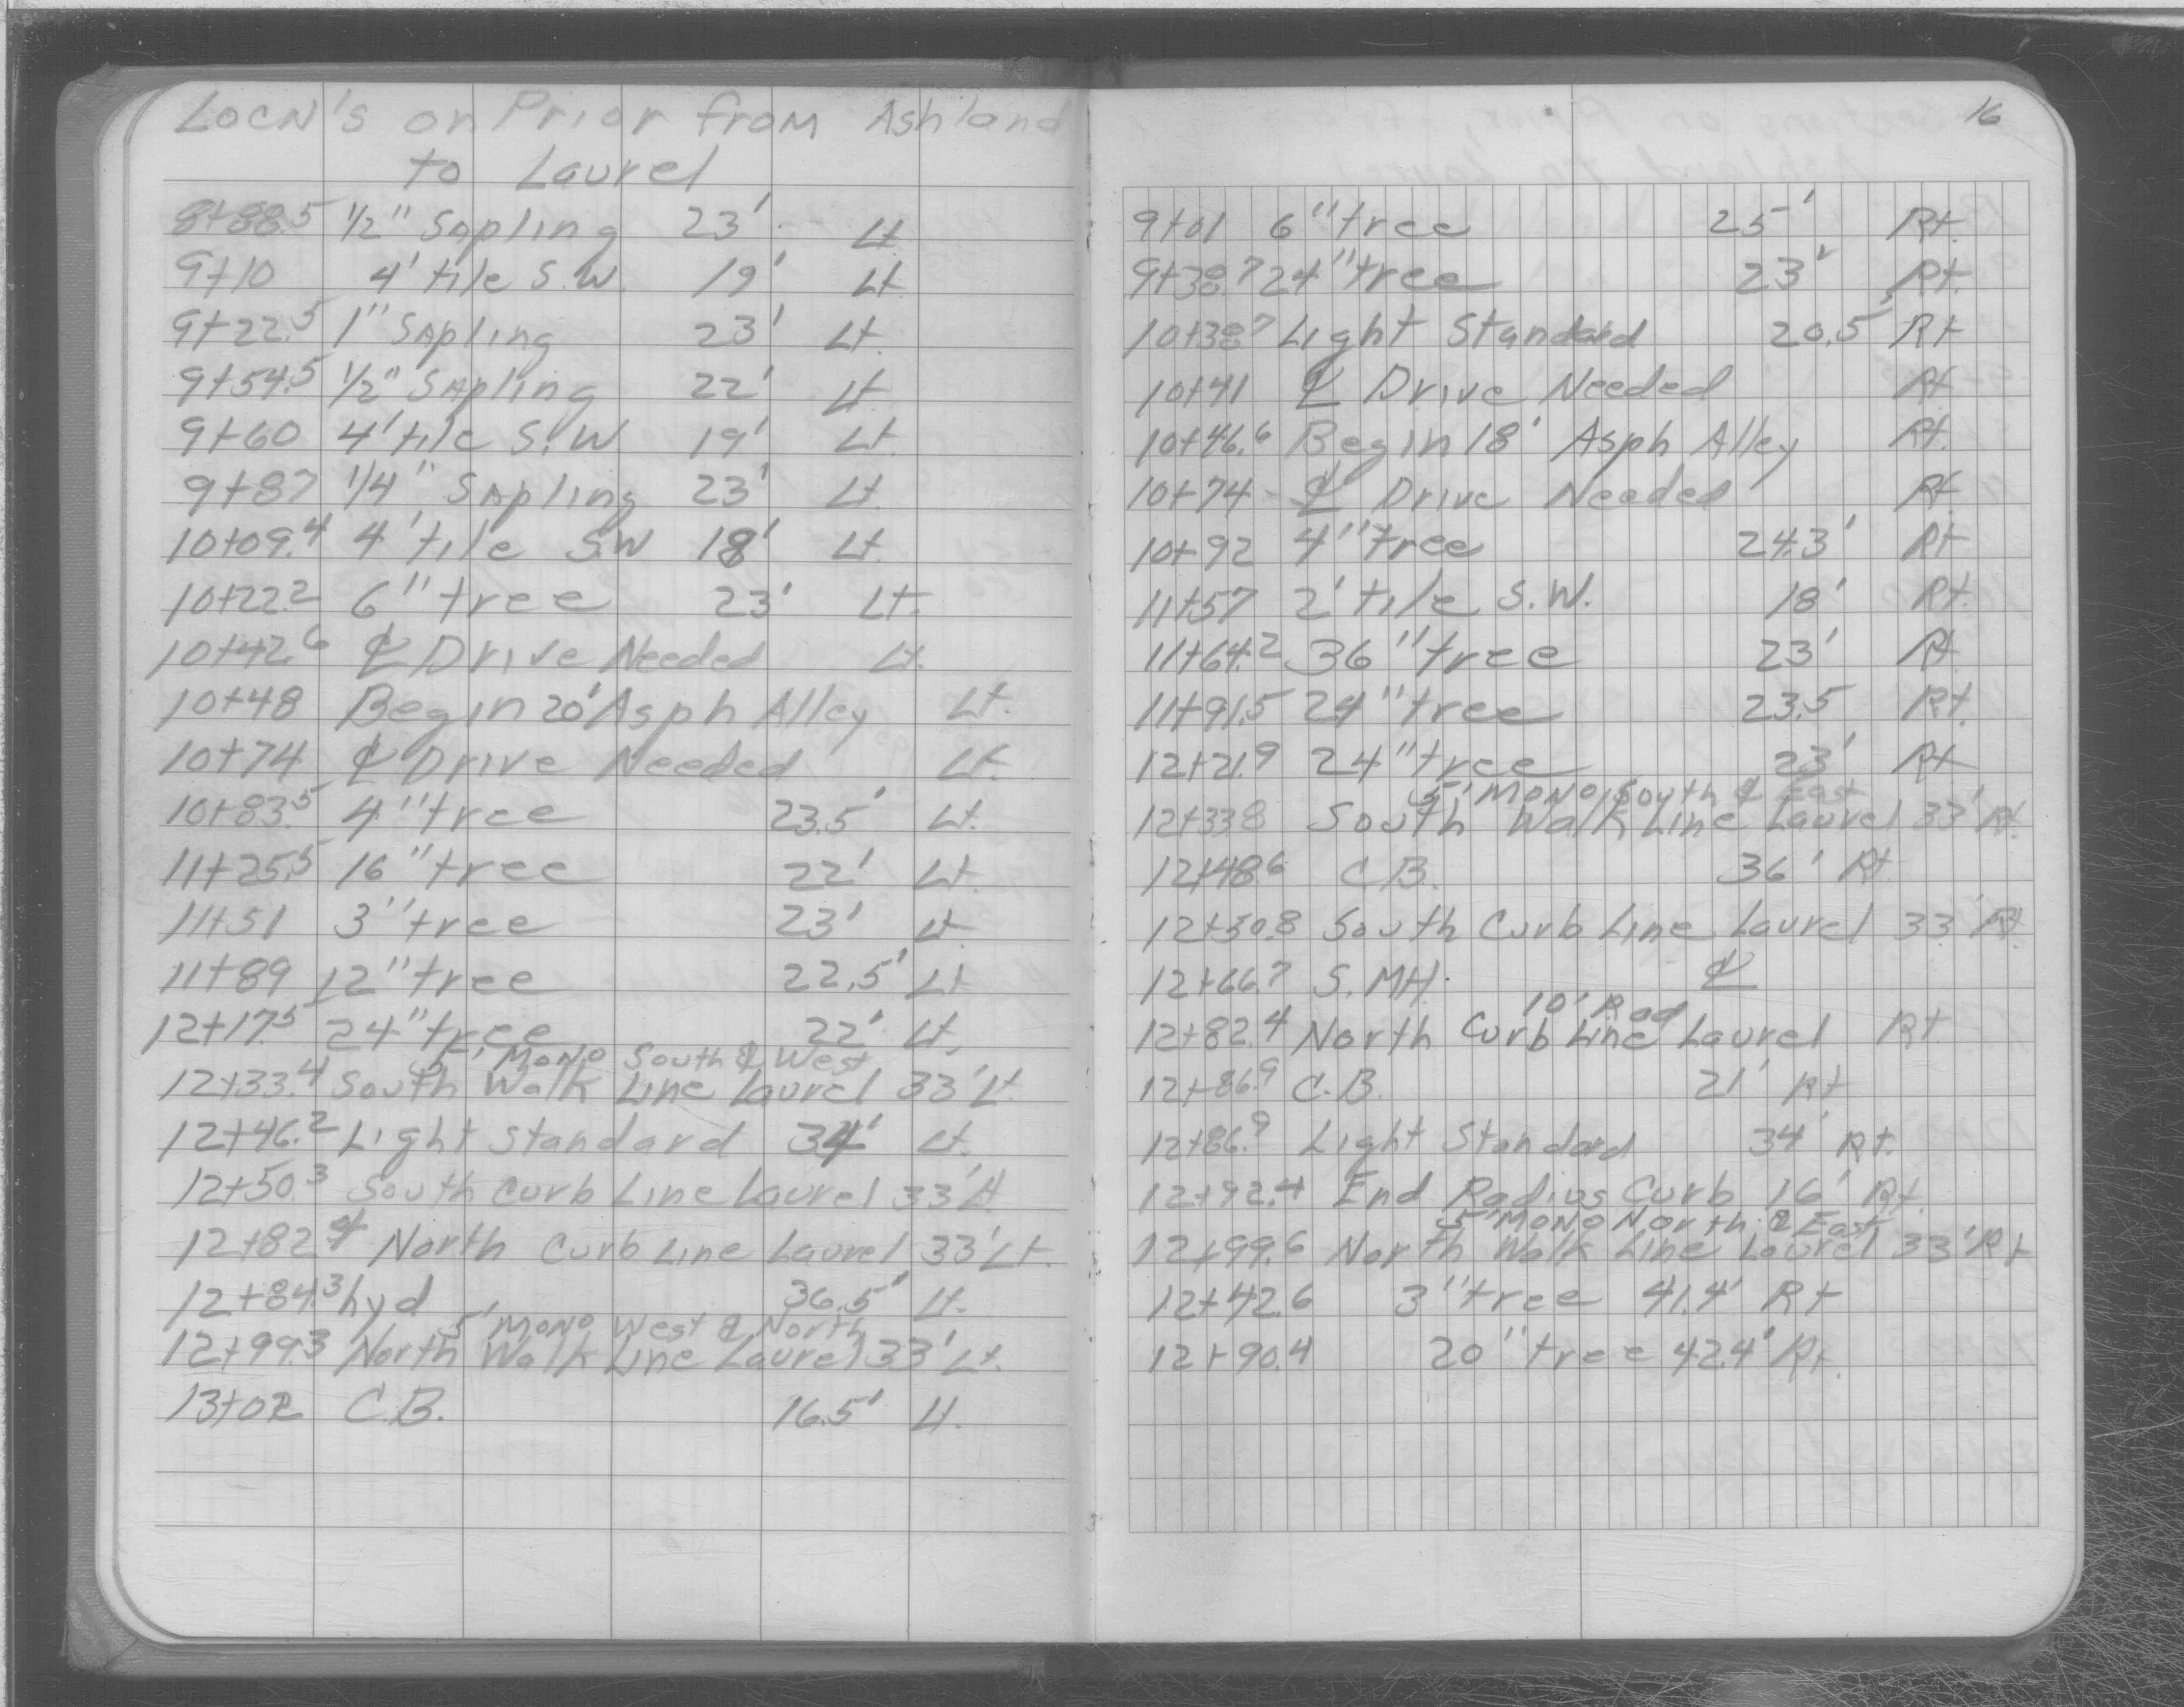 Locn's on Prior from Ashland
to Laurel
8+88.5 1/2" Sapling 23' Lt
9+10 4' tile S.W. 19' Lt
9+22.5 1" Sapling 23' Lt.
9+54.5 1/2" Sapling 22' Lt
9+60 4' tile S.W 19' Lt.
9+87 1/4" Sapling 23' Lt
10+09.4 4' tile S.W 18' Lt.
10+22.2 6" tree 23' Lt.
10+42.6 ℄ Drive Needed Lt.
10+48 Begin 20' Asph Alley Lt.
10+74 ℄ Drive Needed Lt.
10+83.5 4" tree 23.5' Lt.
11+25.5 16" tree 22' Lt.
11+51 3" tree 23' Lt.
11+89 12" tree 22.5' Lt
12+17.5 24" tree 22' Lt.
5' Mono South & West
12+33.4 South Walk Line Laurel 33' Lt.
12+46.2 Light Standard 34' Lt.
12+50.3 South Curb Line Laurel 33' Lt
12+82.4 North Curb Line Laurel 33' Lt.
12+84.3 hyd 36.5' Lt.
5' Mono West & North
12+99.3 North Walk Line Laurel 33' Lt.
13+02 C.B. 16.5' Lt.
16
9+01 6" tree 25' Rt.
9+38.7 24" tree 23' Rt.
10+38.7 Light Standard 20.5' Rt
10+41 ℄ Drive Needed Rt
10+46.6 Begin 18' Asph Alley Rt.
10+74 ℄ Drive Needed Rt
10+92 4" tree 24.3' Rt
11+57 2' tile S.W. 18' Rt.
11+64.2 36" tree 23' Rt
11+91.5 24" tree 23.5 Rt.
12+21.9 24" tree 23' Rt
5' Mono South & East
12+33.8 South Walk Line Laurel 33' Rt.
12+48.6 C.B. 36' Rt
12+50.8 South Curb Line Laurel 33' Rt.
12+66.7 S. MH. ℄
10' Rad
12+82.4 North Curb Line Laurel Rt
12+86.9 C.B. 21' Rt
12+86.9 Light Standard 34' Rt.
12+92.4 End Radius Curb 16' Rt.
5' Mono North & East
12+99.6 North Walk Line Laurel 33' Rt
12+42.6 3" tree 41.4' Rt
12+90.4 20" tree 42.4' Rt.